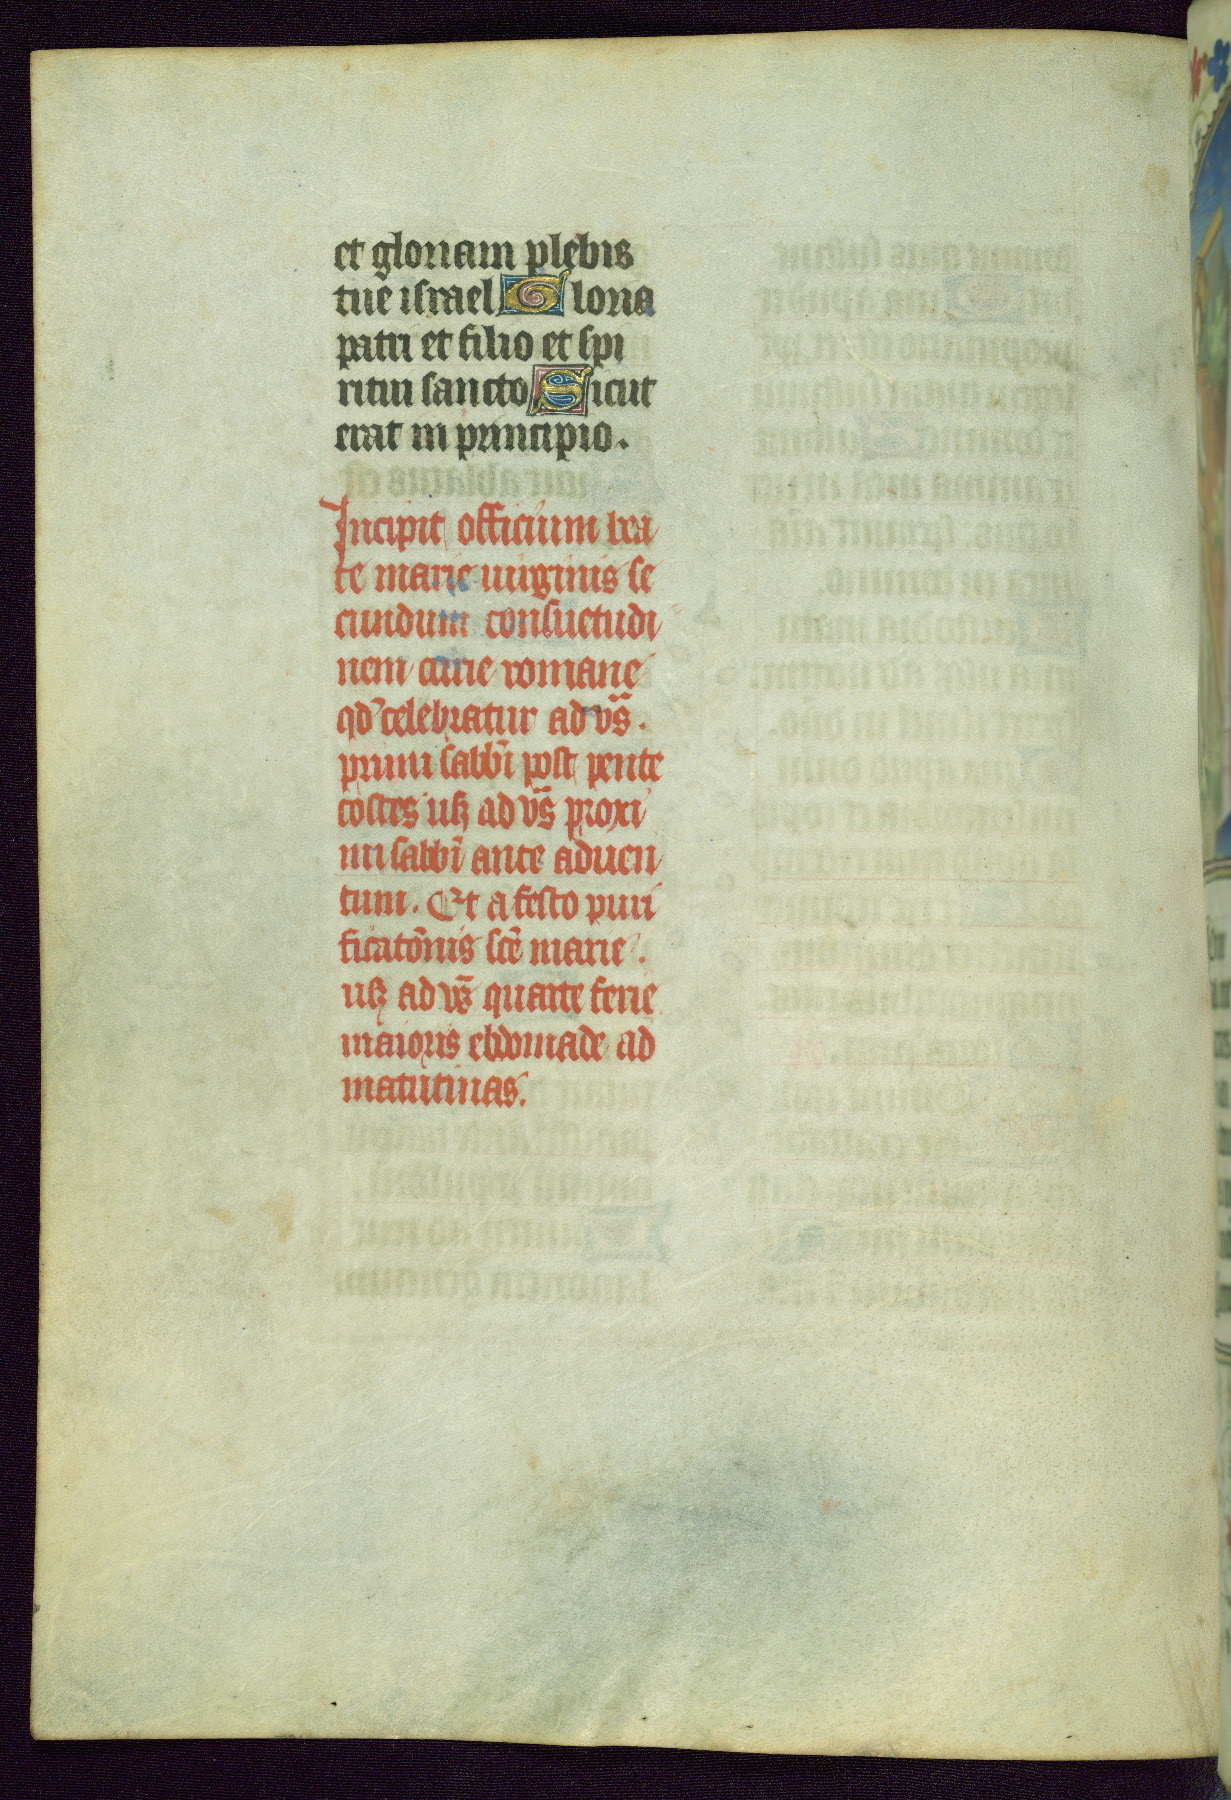 et gloriam plebis
tue israel Gloria
patri et filio et spi
ritui sancto Sicut
erat in principio.
Incipit officium bea
te marie uirginis se
cundum consuetudi
nem curie romane
qd' celebratur ad vs̄.
primi sabbī post pente
costes usꝫ ad vs̄ proxi
mi sabbī ante aduen
tum. Et a festo puri
ficatōnis scē marie.
usꝫ ad vs̄ quarte ferie
maioris ebdomade ad
matutinas.